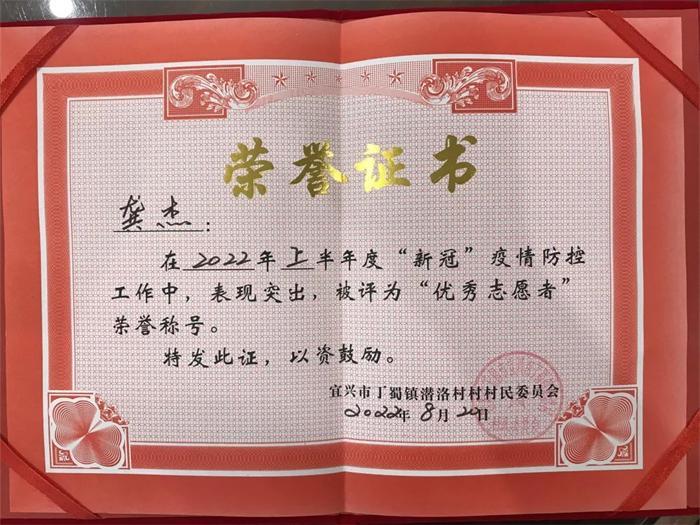 荣誉证书
龚杰：
在2022年上半年度“新冠”疫情防控
工作中，表现突出，被评为“优秀志愿者”
荣誉称号。
特发此证，以资鼓励。
宜兴市丁蜀镇潜洛村村村民委员会
2022年8月20日